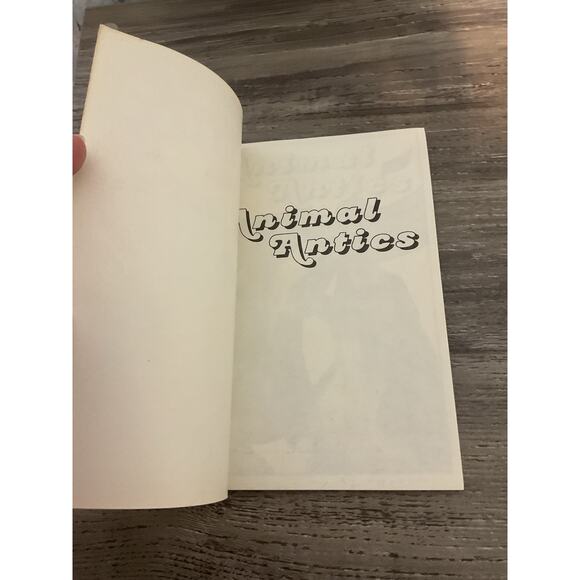 Animal
Antics